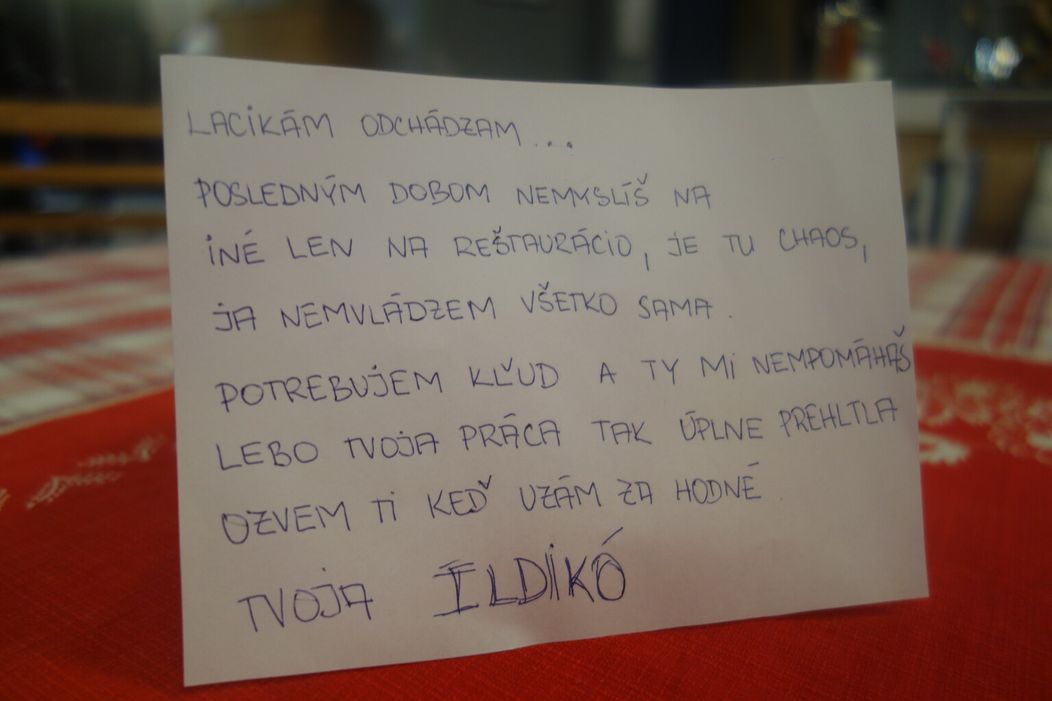 LACIKÁM ODCHÁDZAM...
POSLEDNÝM DOBOM NEMYSLÍŠ NA
INÉ LEN NA REŠTAURÁCIO, JE TU CHAOS,
JA NEMVLÁDZEM VŠETKO SAMA.
POTREBUJEM KĽUD A TY MI NEMPOMÁHAŠ
LEBO TVOJA PRÁCA TAK ÚPLNE PREHLTLA
OZVEM TI KEĎ UZÁM ZA HODNÉ.
TVOJA ILDIKÓ